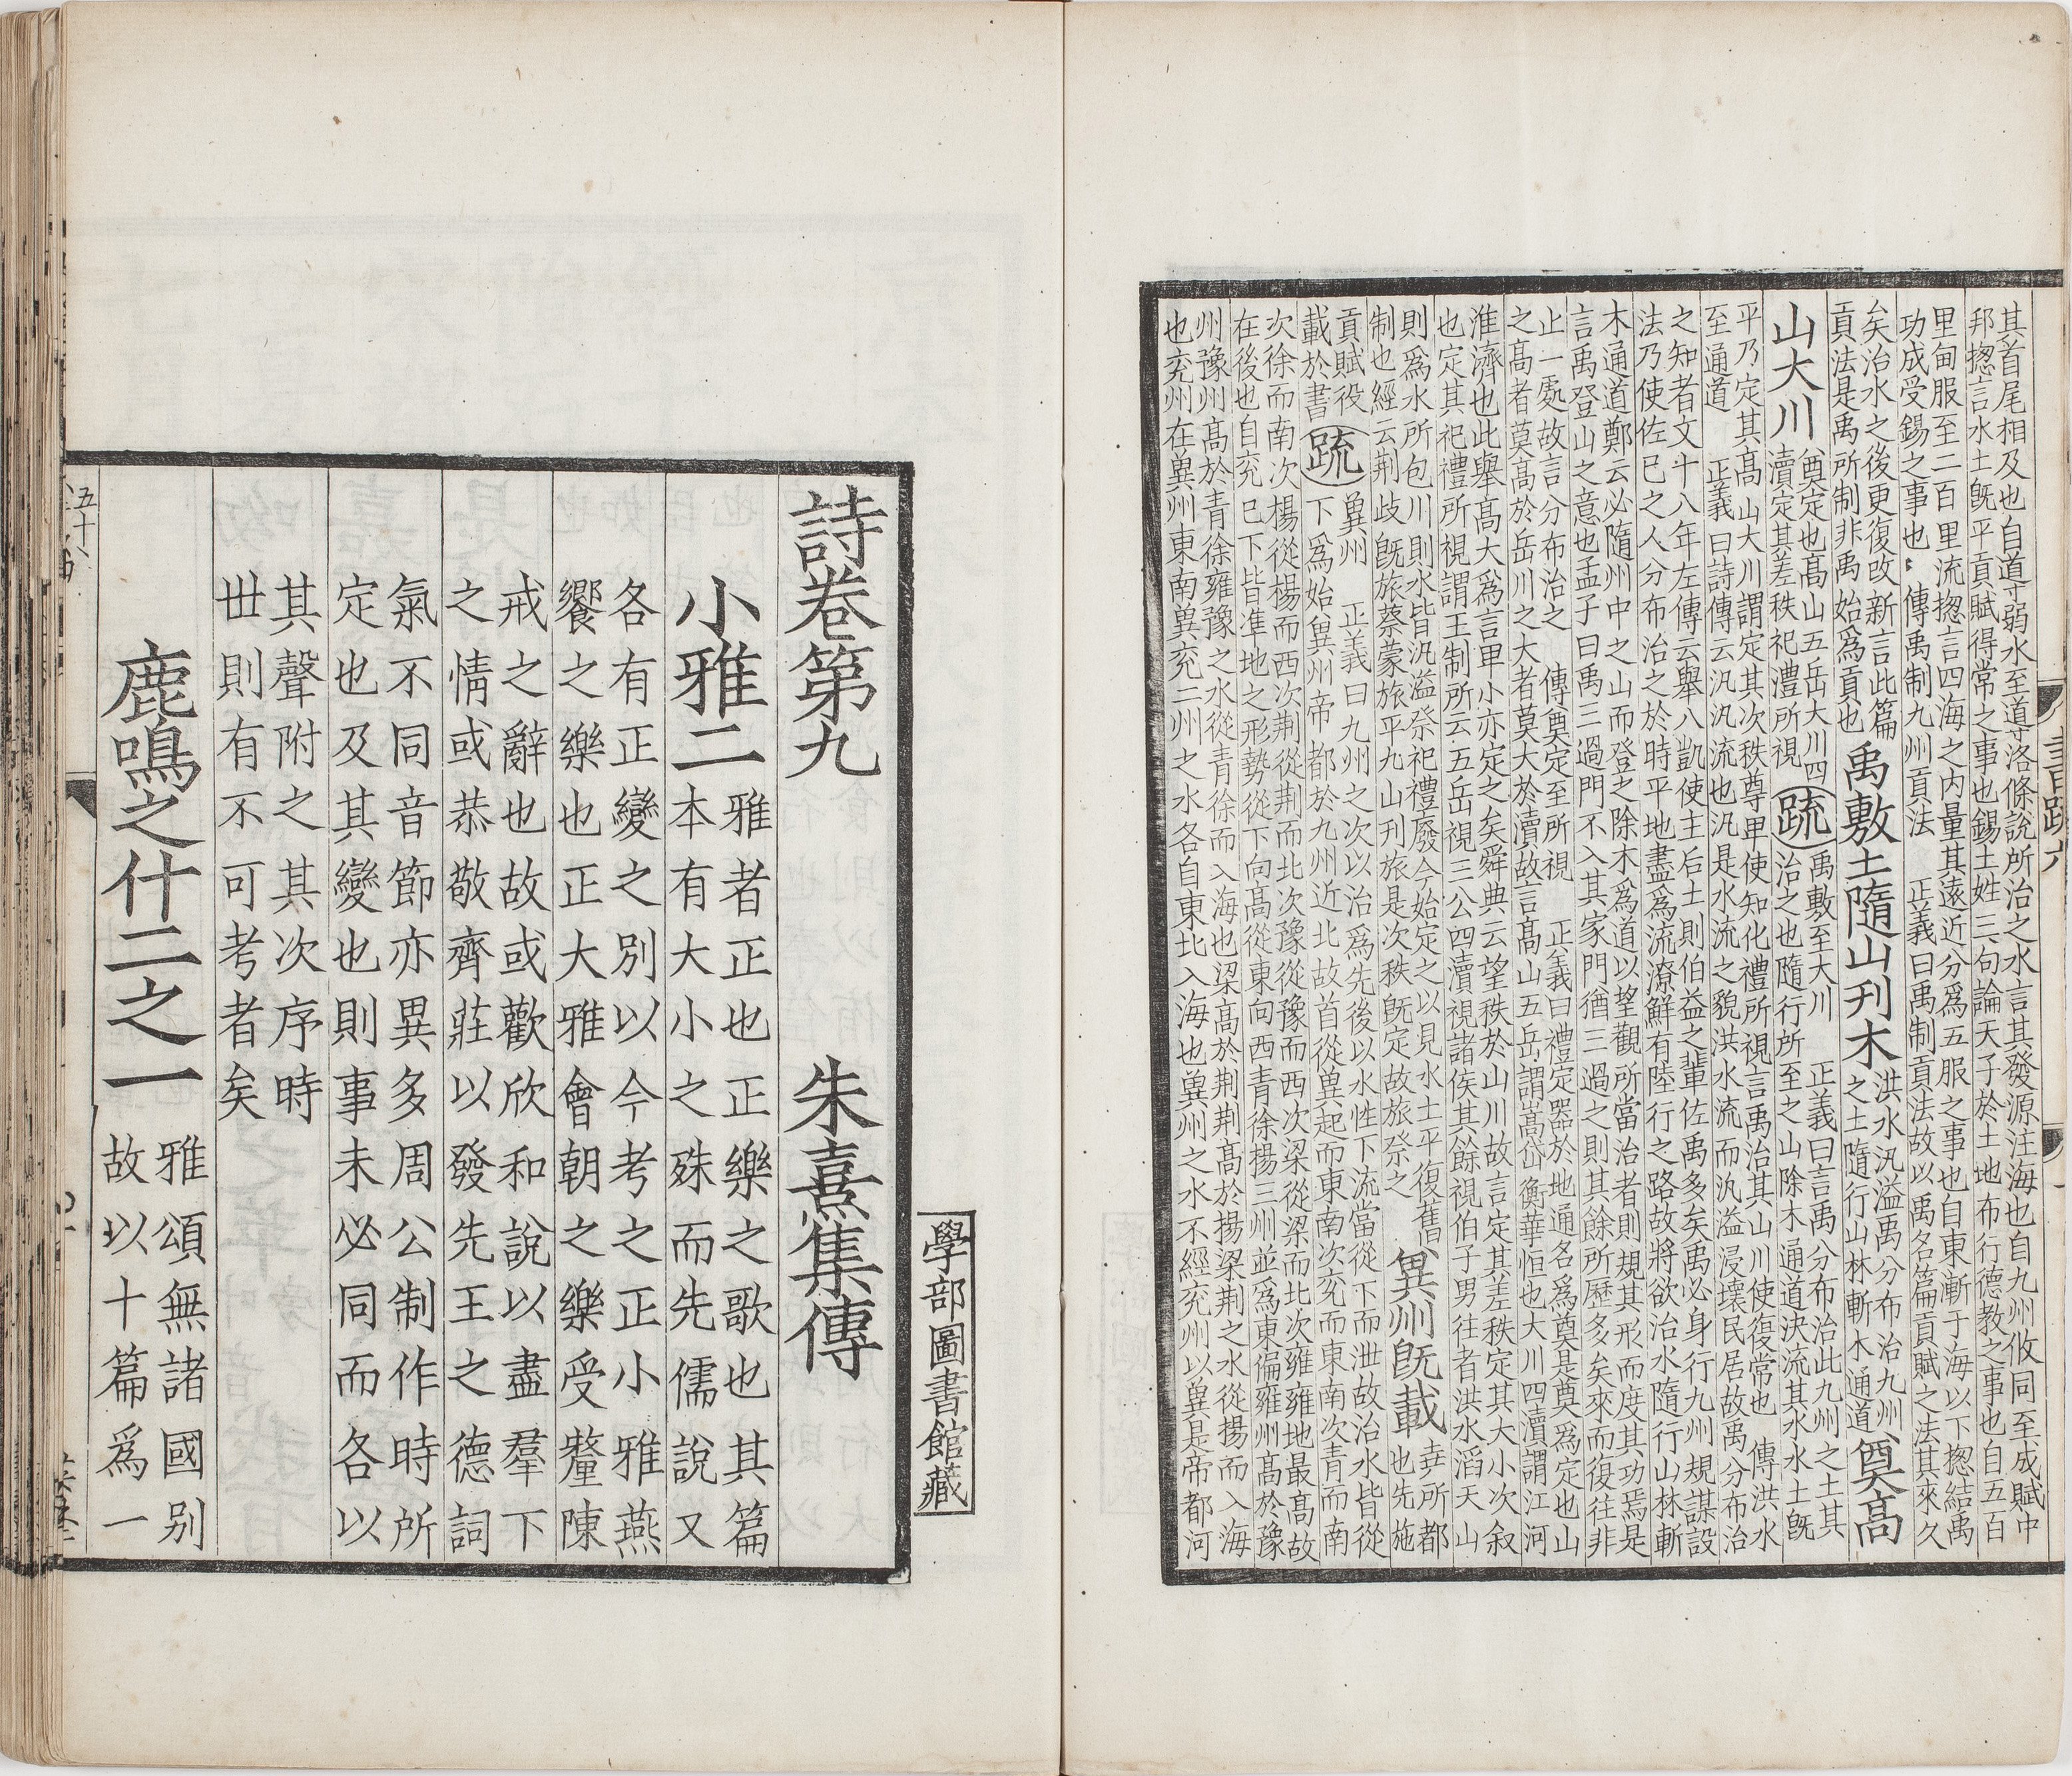 其首尾相及也自道弱水至道洛條說所治之水言其發源注海也自九州攸同至成賦中
邦揔言水土旣平貢賦得常之事也錫土姓三句論天子於土地布行德教之事也自五百
里甸服至二百里流揔言四海之內量其遠近分爲五服之事也自東漸于海以下揔結禹
功成受錫之事也 傳禹制九州貢法 正義曰禹制貢法故以禹名篇貢賦之法其來久
矣治水之後更復改新言此篇
貢法是禹所制非禹始爲貢也
禹敷土隨山刋木
洪水汎溢禹分布治九州
之土隨行山林斬木通道
奠高
山大川
奠定也高山五岳大川四
瀆定其差秩祀禮所視
疏
禹敷至大川 正義曰言禹分布治此九州之土其
治之也隨行所至之山除木通道決流其水水土旣
平乃定其高山大川謂定其次秩尊卑使知祀禮所視言禹治其山川使復常也 傳洪水
至通道 正義曰詩傳云汎汎流也汎是水流之貌洪水流而汎溢浸壞民居故禹分布治
之知者文十八年左傳云舉八凱使主后土則伯益之輩佐禹多矣禹必身行九州規謀設
法乃使佐已之人分布治之於時平地盡爲流潦鮮有陸行之路故將欲治水隨行山林斬
木通道鄭云必隨州中之山而登之除木爲道以望觀所當治者則規其形而度其功焉是
言禹登山之意也孟子曰禹三過門不入其家門猶三過之則其餘所歷多矣來而復往非
止一處故言分布治之 傳奠定至所視 正義曰禮定器於地通名爲奠是奠爲定也山
之高者莫高於岳川之大者莫大於瀆故言高山五岳謂嵩岱衡華恒也大川四瀆謂江河
淮濟也此舉高大爲言卑小亦定之矣舜典云望秩於山川故言定其差秩定其大小次叙
也定其祀禮所視謂王制所云五岳視三公四瀆視諸侯其餘視伯子男往者洪水滔天山
則爲水所包川則水皆汎溢祭祀禮廢今始定之以見水土平復舊
制也經云荆歧旣旅蔡蒙旅平九山刋旅是次秩旣定故旅祭之
兾州旣載
堯所都
也先施
貢賦役
載於書
疏
兾州 正義曰九州之次以治爲先後以水性下流當從下而泄故治水皆從
下爲始兾州帝都於九州近北故首從兾起而東南次兖而東南次青而南
次徐而南次楊從楊而西次荆從荆而北次豫從豫而西次梁從梁而北次雍雍地最高故
在後也自兖已下皆準地之形勢從下向高從東向西青徐揚三州並爲東偏雍州高於豫
州豫州高於青徐雍豫之水從青徐而入海也梁高於荆荆高於揚梁荆之水從揚而入海
也兖州在兾州東南兾兖二州之水各自東北入海也兾州之水不經兖州以兾是帝都河
學部圖書館藏
詩卷第九 朱熹集傳
小雅二
雅者正也正樂之歌也其篇
本有大小之殊而先儒說又
各有正變之別以今考之正小雅燕
饗之樂也正大雅會朝之樂受釐陳
戒之辭也故或歡欣和說以盡羣下
之情或恭敬齊莊以發先王之德詞
氣不同音節亦異多周公制作時所
定也及其變也則事未必同而各以
其聲附之其次序時
丗則有不可考者矣
鹿鳴之什二之一
雅頌無諸國別
故以十篇爲一